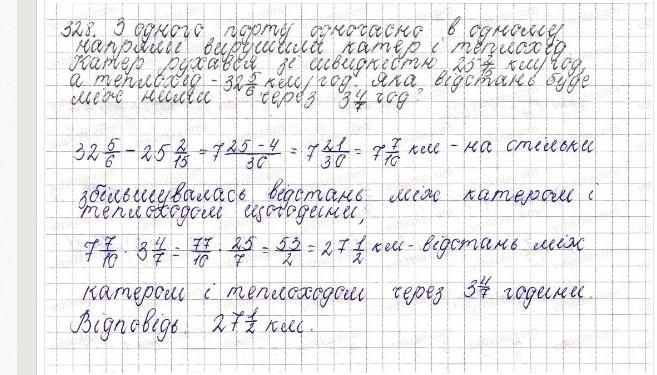 328. З одного порту одночасно в одному
напрямі вирушили катер і теплохід
Катер рухався зі швидкістю 25 2/15 км/год,
а теплохід - 32 5/6 км/год. Яка відстань буде
між ними через 3 4/7 год?
32 5/6 - 25 2/15 = 7 25-4/30 = 7 21/30 = 7 7/10 км - на стільки
збільшувалась відстань між катером і
теплоходом щогодини;
7 7/10 · 3 4/7 = 77/10 · 25/7 = 55/2 = 27 1/2 км - відстань між
катером і теплоходом через 3 4/7 години.
Відповідь. 27 1/2 км.